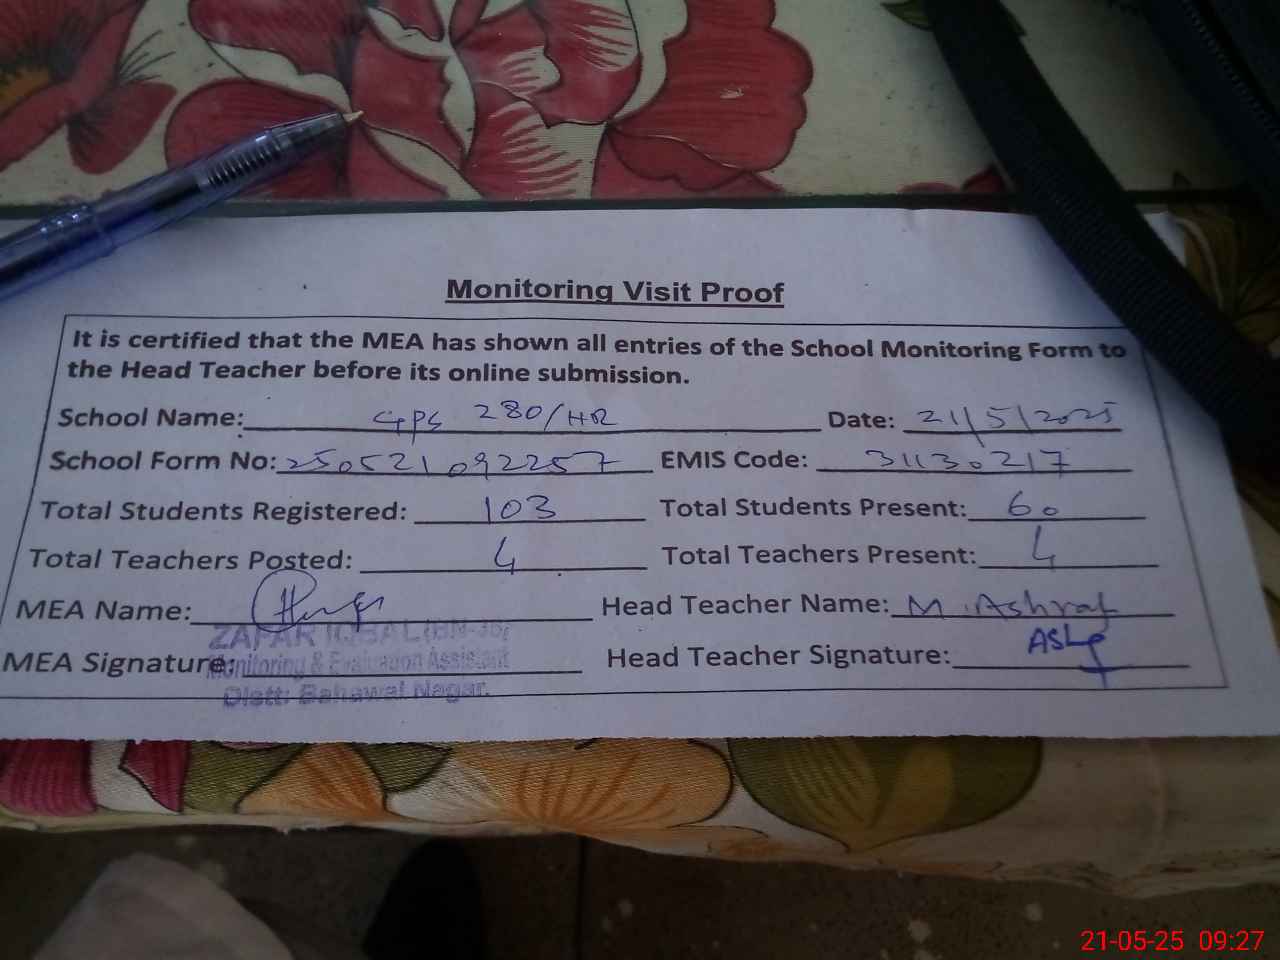 Monitoring Visit Proof
It is certified that the MEA has shown all entries of the School Monitoring Form to
the Head Teacher before its online submission.
School Name: GPS 280/HR Date: 21/5/2025
School Form No: 250521092257 EMIS Code: 31130217
Total Students Registered: 103 Total Students Present: 60
Total Teachers Posted: 4 Total Teachers Present: 4
MEA Name: Head Teacher Name: M. Ashraf
ZAFAR IQBAL
MEA Signature: Monitoring & Evaluation Assistant Head Teacher Signature:
Distt: Bahawal Nagar.
21-05-25 09:27